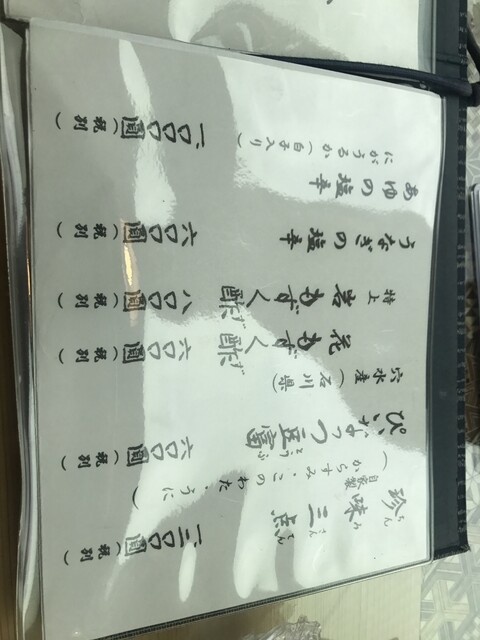 珍味三点
ちんみさんてん
自家製
(からすみ・このわた・うに)
圓(税別)
ぴーなっつ豆富
とうふ
六〇〇圓(税別)
穴水産(石川県)
花もずく酢
ず
六〇〇圓(税別)
特上 岩もずく酢
ず
八〇〇圓(税別)
うなぎの塩辛
六〇〇圓(税別)
あゆの塩辛
にがうるか(白子入り)
一〇〇〇圓(税別)